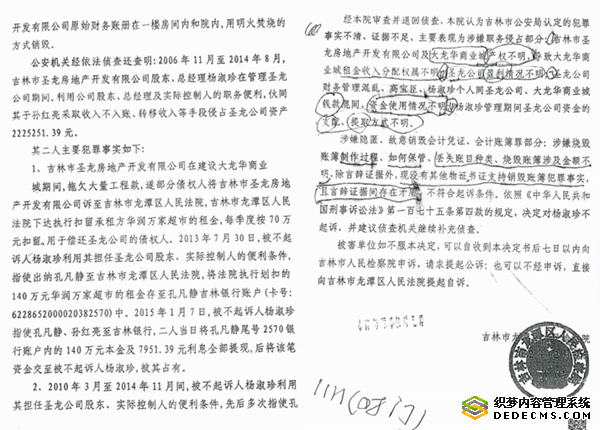 开发有限公司原始财务账册在一楼房间内和院内，用明火焚烧的
方式销毁。
公安机关经依法侦查还查明：2006年11月至2014年8月，
吉林市圣龙房地产开发有限公司股东、总经理杨淑珍在管理圣龙
公司期间，利用公司股东、总经理及实际控制人的职务便利，伙同
其子孙红亮采取收入不入账、转移收入等手段侵占圣龙公司资产
2225251.39元。
其二人主要犯罪事实如下：
1、吉林市圣龙房地产开发有限公司在建设大龙华商业
城期间，拖欠大量工程款，送部分债权人将吉林市圣龙房地产开发
有限公司诉至吉林市龙潭区人民法院，吉林市龙潭区人民法院
下达执行扣留承租方华润万家超市的租金，每季度按70万
元扣留，用于偿还圣龙公司的债权人。2013年7月30日，被不起
诉人杨淑珍利用其担任圣龙公司股东、实际控制人的便利条件，
指使出纳孔凡静至吉林市龙潭区人民法院，将法院执行划扣的
140万元华润万家超市的租金存至孔凡静吉林银行账户（卡号：
6228652000020382570）中。2015年1月7日，被不起诉人杨淑珍
指使孔凡静、孙红亮至吉林银行，二人当日将孔凡静尾号2570银
行账户内的140万元本金及7951.39元利息全部提现，后将该笔
资金交至被不起诉人杨淑珍，被其占有。
2、2010年3月至2014年11月间，被不起诉人杨淑珍利用
其担任圣龙公司股东、实际控制人的便利条件，先后多次指使孔
经本院审查并退回侦查，本院认为吉林市公安局认定的犯罪
事实不清、证据不足，主要表现为涉嫌职务侵占部分：吉林市圣
龙房地产开发有限公司及大龙华商业城产权不明，导致大龙华商
业城租金收入分配权属不明，圣龙公司盈利情况不明，圣龙公司
财务管理混乱，高宝臣、杨淑珍个人同圣龙公司、大龙华商业城
钱款混同，资金使用情况不明，杨淑珍管理期间圣龙公司资金的
支配、提取方式不明。
涉嫌隐匿、故意销毁会计凭证、会计账簿罪部分：涉嫌烧毁
账簿制作过程、如何保管、丢失账目种类、烧毁账簿涉及金额不
明，除言辞证据外，现没有其他物证书证支持销毁账簿犯罪事实，
且言辞证据间存在矛盾，不符合起诉条件。依照《中华人民共和
国刑事诉讼法》第一百七十五条第四款的规定，决定对杨淑珍不
起诉，并建议侦查机关继续补充侦查。
被害单位如不服本决定，可以自收到本决定书后七日以内向
吉林市人民检察院申诉，请求提起公诉；也可以不经申诉，直接
向吉林市龙潭区人民法院提起自诉。
吉林市龙潭区人民检察院
织梦内容管理系统
DEDECMS.COM